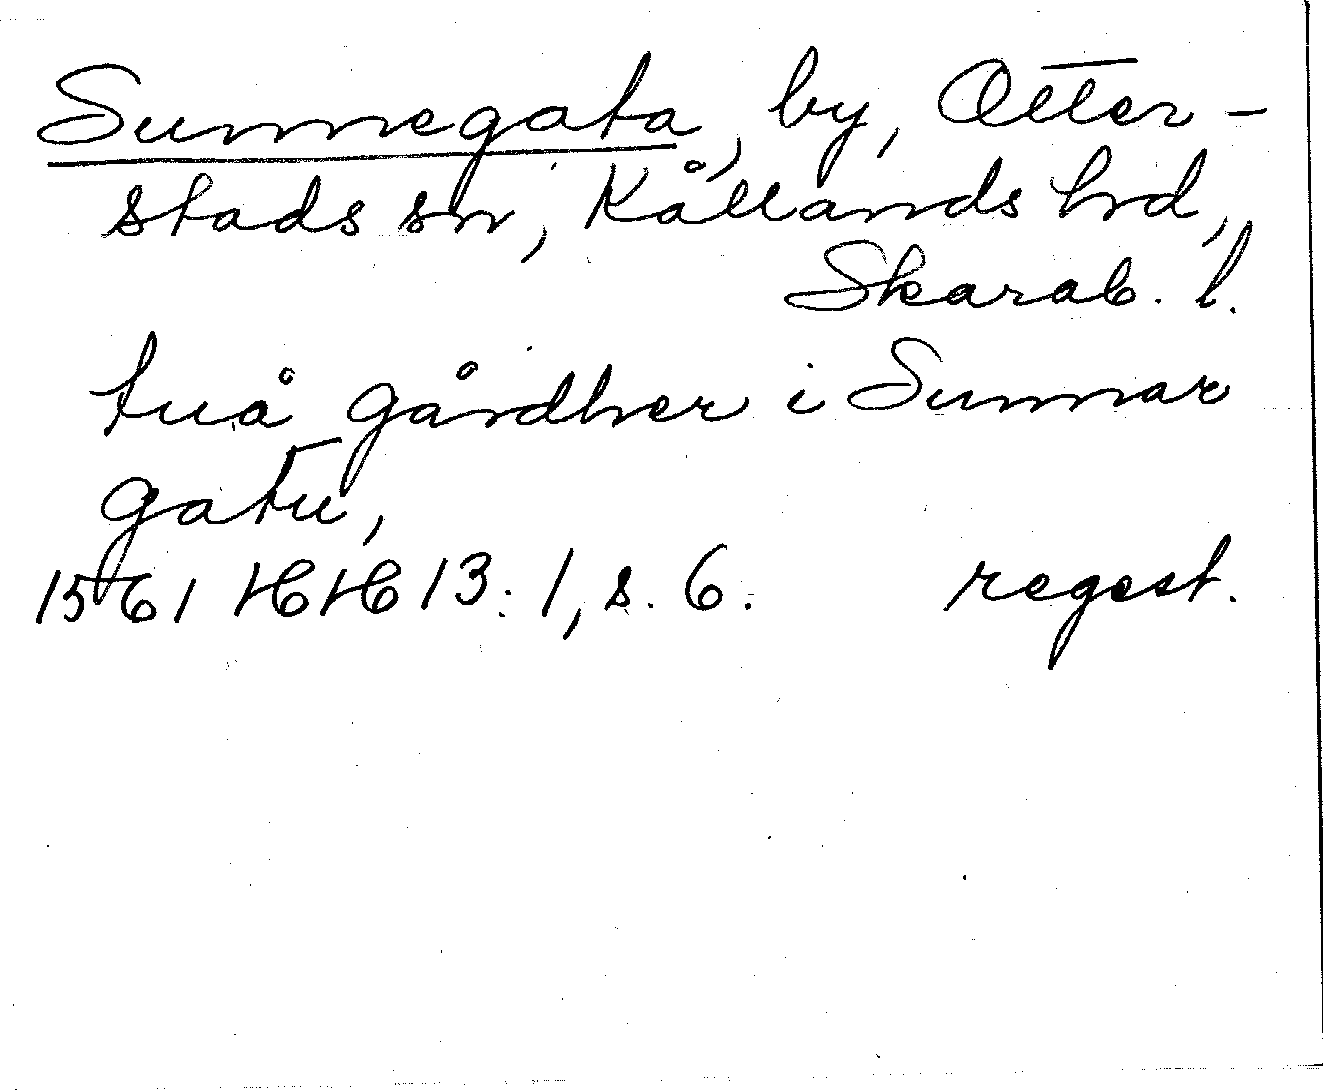 Sunnegata, by, Otter-
stads sn, Kållands hrd,
Skarab. l.
tuå gårdher i Sunnar
gatu,
1561 HH 13:1, s. 6. regest.